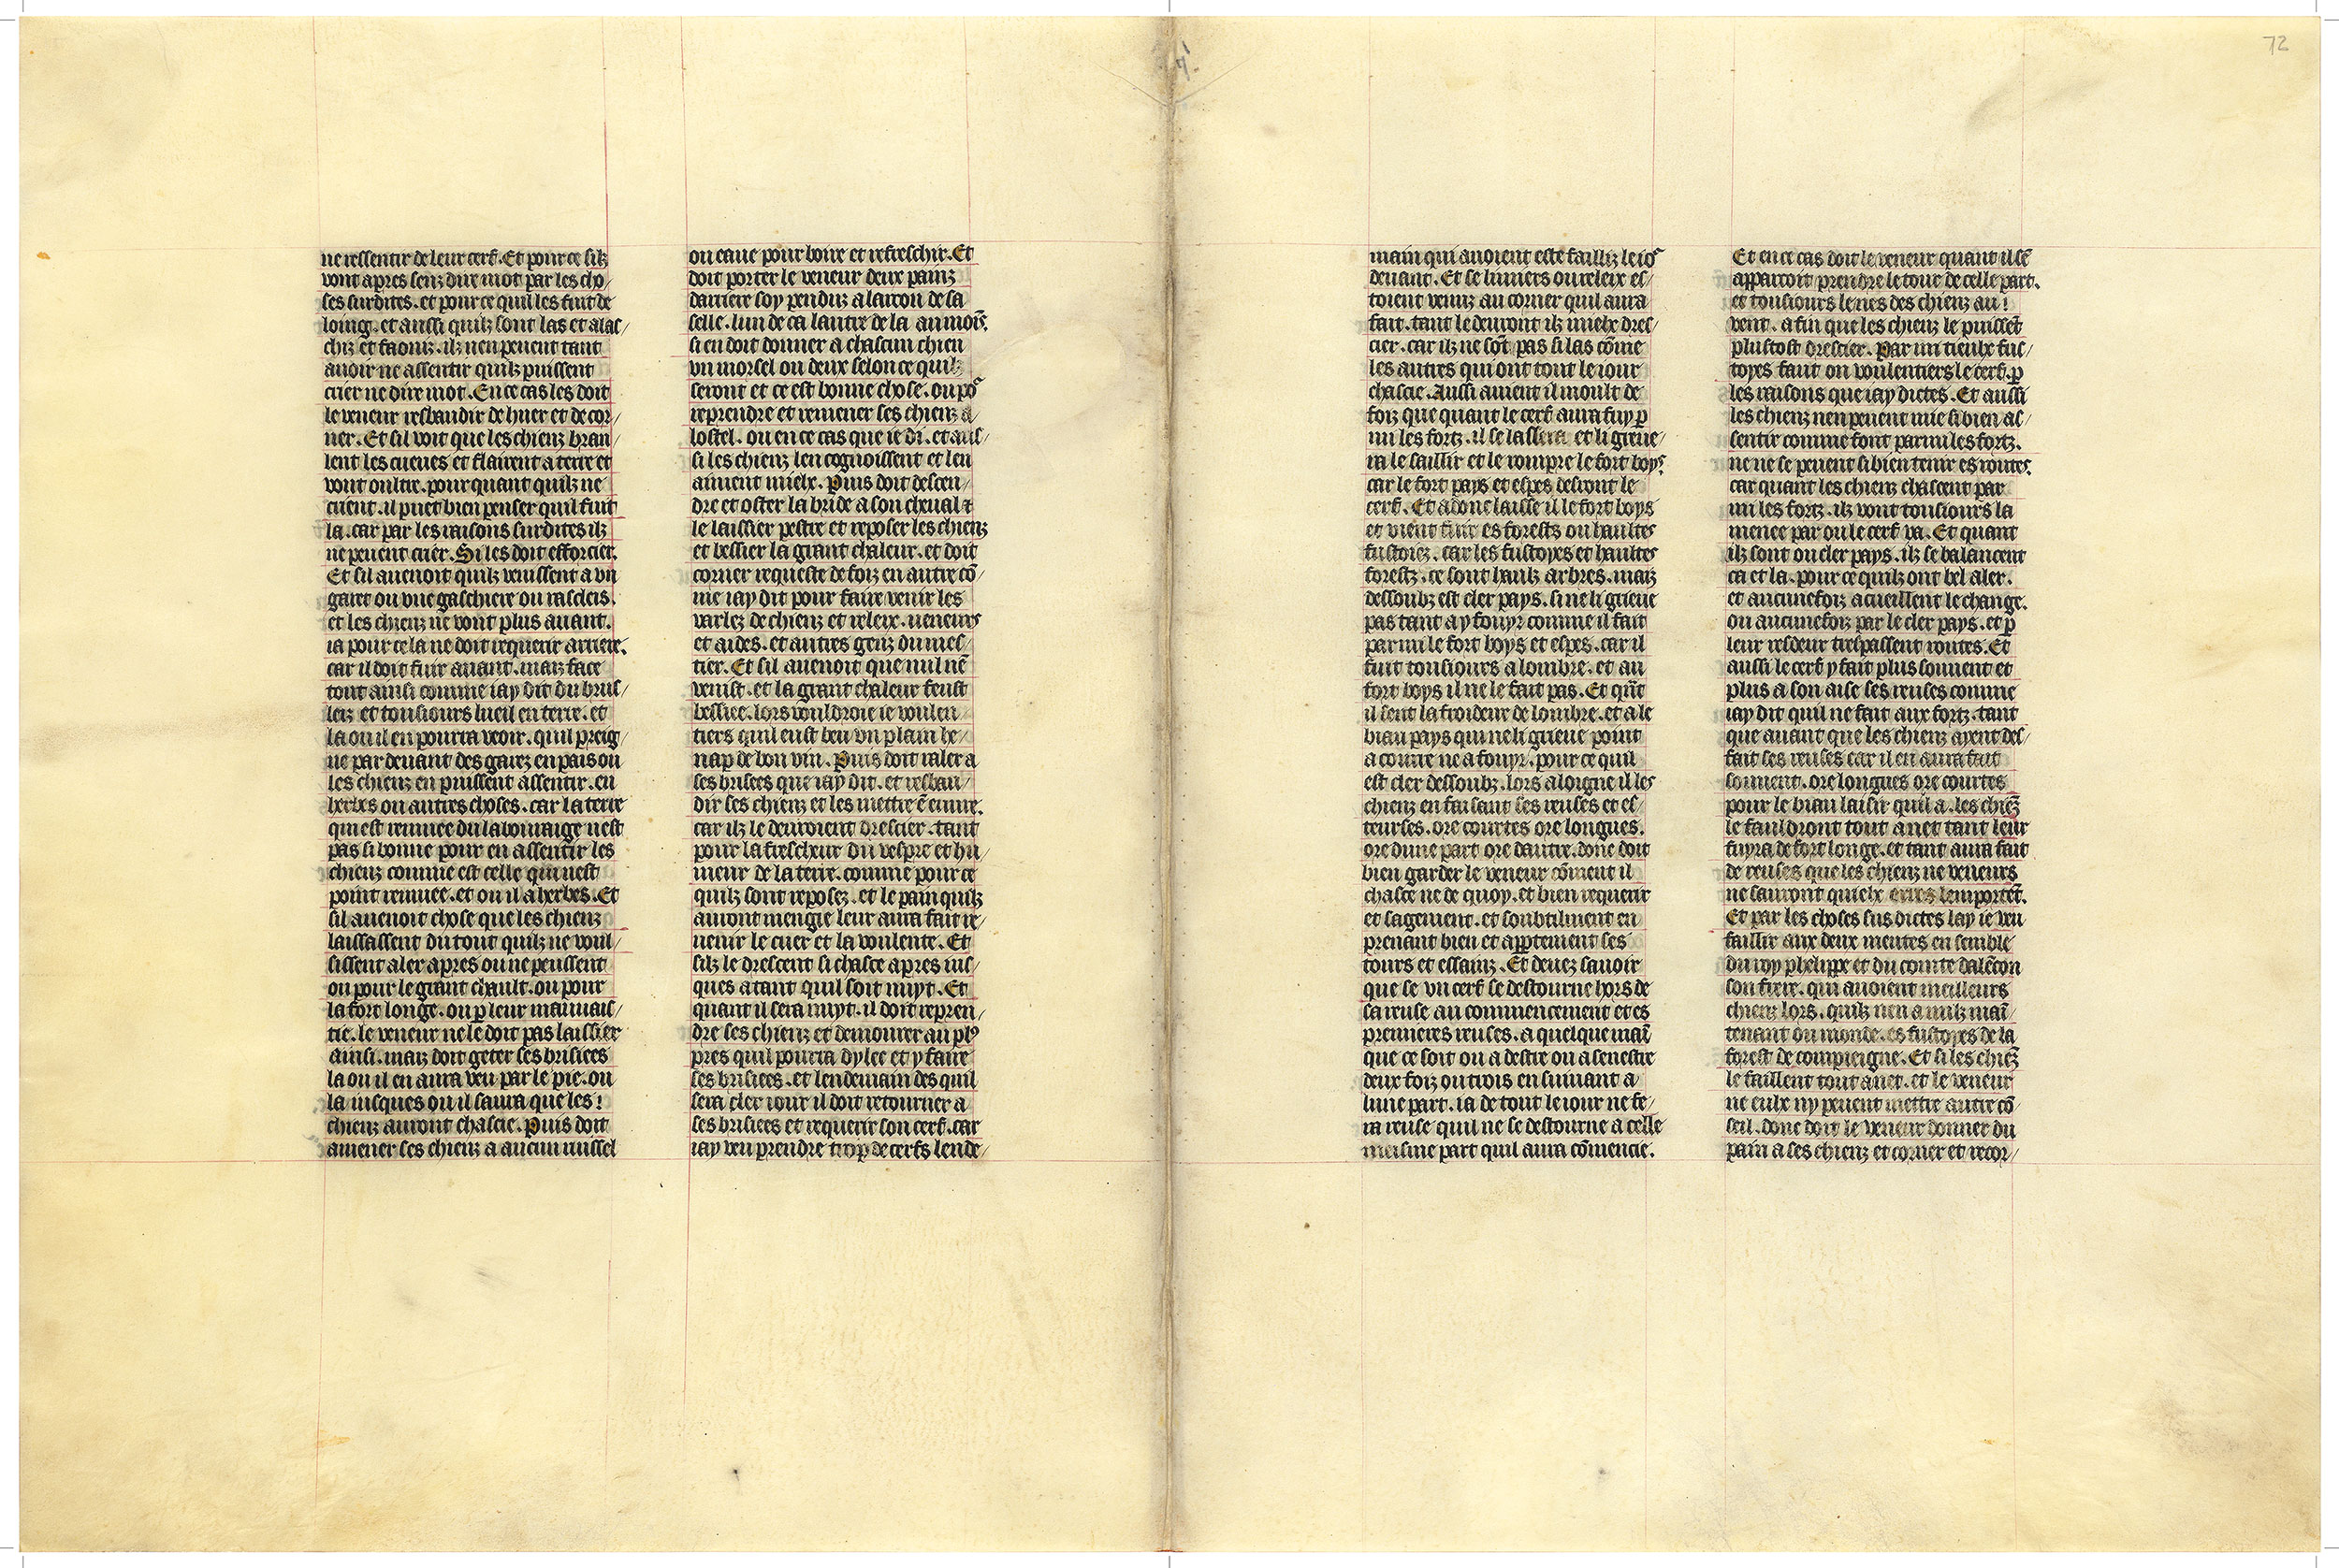 72
ne ressentir de leur cerf. Et pour ce silz
vont apres senz dire mot par les cho/
ses surdites. et pour ce quil les fuit de
loing. et aussi quilz sont las et alas/
chiz et faoniz. ilz nen peuent tant
auoir ne assentir quilz puissent
crier ne dire mot. En ce cas les doit
le veneur resbaudir de huer et de cor/
ner. Et sil voit que les chienz bran/
lent les cueues et flairent a terre et
vont oultre. pour quant quilz ne
crient. il puet bien penser quil fuit
la. car par les raisons surdites ilz
ne peuent crier. Si les doit efforcier.
Et sil auenoit quilz venissent a vn
garet ou vne gaschiere ou rascleis.
et les chienz ne vont plus auant.
ia pour ce la ne doit requerir arriere.
car il doit fuir auant. maiz face
tout ainsi comme iay dit du brus/
leiz et tousiours lueil en terre. et
la ou il en pourra veoir. quil preig/
ne par deuant des garez en pais ou
les chienz en puissent assentir. en
herbes ou autres choses. car la terre
qui est remuee du labouraige nest
pas si bonne pour en assentir les
chienz comme est celle qui nest
point remuee. et ou il a herbes. Et
sil auenoit chose que les chienz
laissassent du tout quilz ne voul/
sissent aler apres ou ne peussent
ou pour le grant chault. ou pour
la fort longe. ou p leur mauuais/
tie. le veneur ne le doit pas laissier
ainsi. maiz doit geter ses brisiees
la ou il en aura veu par le pie. ou
la iusques ou il saura que les !
chienz auront chascie. Puis doit
amener ses chienz a aucun ruissel
ou eaue pour boire et refreschir. Et
doit porter le veneur deux painz
darriere soy penduz a larcon de sa
selle. lun de ca lautre de la au moīs.
si en doit donner a chascun chien
vn morsel ou deux selon ce quilz
seront et ce est bonne chose. ou poʳ
reprendre et remener ses chienz a/
lostel. ou en ce cas que ie di. et aus/
si les chienz len cognoissent et len
aiment mielx. Puis doit descen/
dre et oster la bride a son cheual et
le laissier pestre et reposer les chienz
et bessier la grant chaleur. et doit
corner requeste de foiz en autre cō/
me iay dit pour faire venir les
varlez de chienz et releix. veneurs
et aides. et autres genz du mes/
tier. Et sil auenoit que nul nē
venist. et la grant chaleur feust
bessiee. lors vouldroie ie voulen/
tiers quil eust beu vn plain he/
nap de bon vin. Puis doit raler a
ses brisees que iay dit. et resbau/
dir ses chienz et les mettre ē eriure.
car ilz le deuroient drescier. tant
pour la frescheur du vespre et hu/
meur de la terre. comme pour ce
quilz sont reposez. et le pain quilz
auront mengie leur aura fait re/
uenir le cuer et la voulente. Et
silz le drescent si chasce apres ius/
ques a tant quil soit nuyt. Et
quant il sera nuyt. il doit repren/
dre ses chienz et demourer au plꝰ
pres quil pourra dylec et y faire
ses brisiees. et lendemain des quil
sera cler iour il doit retourner a
ses brisiees et requerir son cerf. car
iay veu prendre trop de cerfs lende/
main qui auoient este failliz le ioʳ
deuant. Et se limiers ou releix es/
toient venuz au corner quil aura
fait. tant le deuront ilz mielx dres/
cier. car ilz ne sōt pas si las cōme
les autres qui ont tout le iour
chascie. Aussi auient il moult de
foiz que quant le cerf aura fuy p
mi les fortz. il se lassera et li greue/
ra le saillir et le rompre le fort boys.
car le fort pays et espes desront le
cerf. Et adonc laisse il le fort boys
et vient fuir es forestz ou haultes
fustoiez. car les fustoyes et haultes
forestz. ce sont haulz arbres. maiz
dessoubz est cler pays. si ne li grieue
pas tant a y fouyr comme il fait
par mi le fort boys et espes. car il
fuit tousiours a lombre. et au
fort boys il ne le fait pas. Et qūt
il sent la froideur de lombre. et a le
biau pays qui ne li grieue point
a courre ne a fouyr. pour ce quil
est cler dessoubz. lors alorgne il les
chienz en faisant ses reuses et es/
teurses. ore courtes ore longues.
ore dune part ore dautre. donc doit
bien garder le veneur cōment il
chasce ne de quoy. et bien requerir
et sagement. et soubtilment en
prenant bien et apptement ses
tours et essainz. Et deuez sauoir
que se vn cerf se destourne hors de
sa reuse au commencement et es
premieres reuses. a quelque maī
que ce soit ou a destre ou a senestre
deux foiz ou trois en suiuant a
lune part. ia de tout le iour ne fe/
ra reuse quil ne se destourne a celle
meisme part quil aura cōmencie.
Et en ce cas doit le veneur quant il sē
apparcoit prendre le tour de celle part.
et tousiours le nes des chienz au !
vent. a fin que les chienz le puissēt
plus tost drescier. Par mi tieulx fus/
toyes faut on voulentiers le cerf. p
les raisons que iay dictes. Et aussi
les chienz nen peuent mie si bien as/
sentir comme font parmi les fortz.
ne ne se peuent si bien tenir es routes.
car quant les chienz chascent par
mi les fortz. ilz vont tousiours la
menee par ou le cerf va. Et quant
ilz sont ou cler pays. ilz se balancent
ca et la. pour ce quilz ont bel aler.
et aucunefoiz acueillent le change.
ou aucunefoiz par le cler pays. et p
leur resdeur trespassent routes. Et
aussi le cerf y fait plus souuent et
plus a son aise ses reuses comme
iay dit quil ne fait aux fortz. tant
que auant que les chienz ayent des/
fait ses reuses car il en aura fait
souuent. ore longues ore courtes
pour le biau laisir quil a. les chiēz
le fauldront tout a net tant leur
fuyra de fort longe. et tant aura fait
de reuses que les chienz ne veneurs
ne sauront quielx erres lemportēt.
Et par les choses sus dictes lay ie veu
faillir aux deux meutes en semble
du roy phelippe et du conte dalēcon
son frere. qui auoient meilleurs
chienz lors. quilz nen a nulz maī/
tenant ou monde. es fustoyes de la
forest de compieigne. Et si les chiēz
le faillent tout a net. et le veneur
ne eulx ny peuent mettre autre cō/
seil. donc doit le veneur donner du
pain a ses chienz et corner et recor/